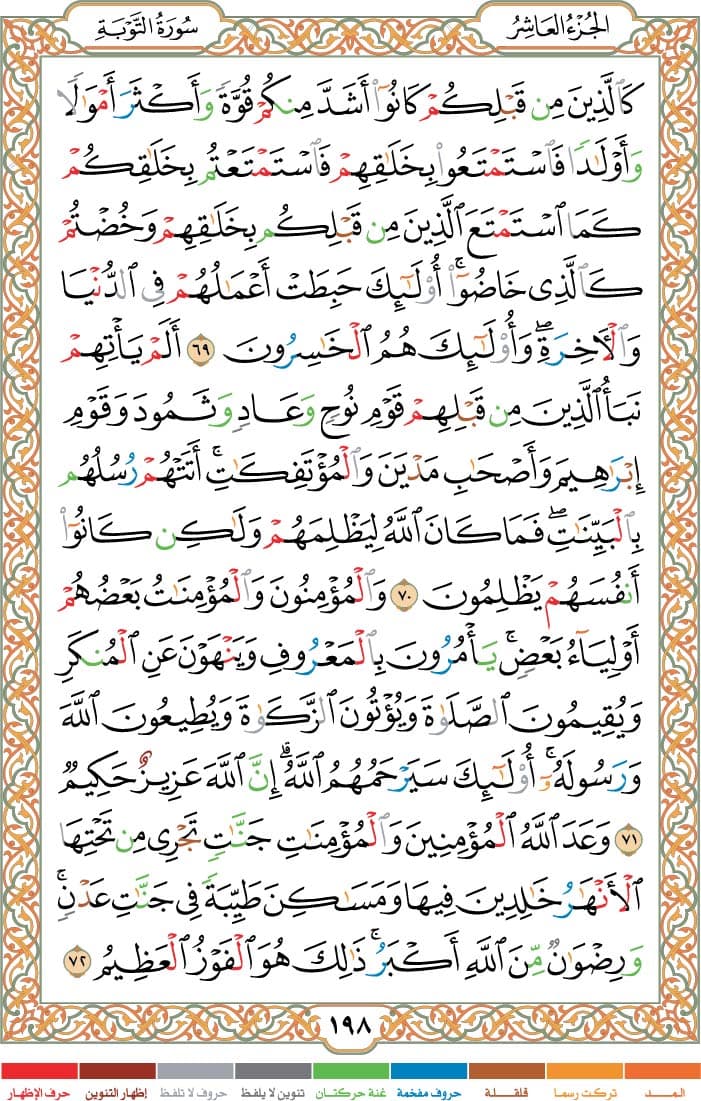 الجُزْءُ العَاشِرُ
سُورَةُ التَّوْبَةِ
كَالَّذِينَ مِن قَبْلِكُمْ كَانُوٓا۟ أَشَدَّ مِنكُمْ قُوَّةً وَأَكْثَرَ أَمْوَٰلًا
وَأَوْلَـٰدًا فَٱسْتَمْتَعُوا۟ بِخَلَـٰقِهِمْ فَٱسْتَمْتَعْتُم بِخَلَـٰقِكُمْ
كَمَا ٱسْتَمْتَعَ ٱلَّذِينَ مِن قَبْلِكُم بِخَلَـٰقِهِمْ وَخُضْتُمْ
كَٱلَّذِى خَاضُوٓا۟ ۚ أُو۟لَـٰٓئِكَ حَبِطَتْ أَعْمَـٰلُهُمْ فِى ٱلدُّنْيَا
وَٱلْـَٔاخِرَةِ ۖ وَأُو۟لَـٰٓئِكَ هُمُ ٱلْخَـٰسِرُونَ ٦٩ أَلَمْ يَأْتِهِمْ
نَبَأُ ٱلَّذِينَ مِن قَبْلِهِمْ قَوْمِ نُوحٍ وَعَادٍ وَثَمُودَ وَقَوْمِ
إِبْرَٰهِيمَ وَأَصْحَـٰبِ مَدْيَنَ وَٱلْمُؤْتَفِكَـٰتِ ۚ أَتَتْهُمْ رُسُلُهُم
بِٱلْبَيِّنَـٰتِ ۖ فَمَا كَانَ ٱللَّهُ لِيَظْلِمَهُمْ وَلَـٰكِن كَانُوٓا۟
أَنفُسَهُمْ يَظْلِمُونَ ٧٠ وَٱلْمُؤْمِنُونَ وَٱلْمُؤْمِنَـٰتُ بَعْضُهُمْ
أَوْلِيَآءُ بَعْضٍ ۚ يَأْمُرُونَ بِٱلْمَعْرُوفِ وَيَنْهَوْنَ عَنِ ٱلْمُنكَرِ
وَيُقِيمُونَ ٱلصَّلَوٰةَ وَيُؤْتُونَ ٱلزَّكَوٰةَ وَيُطِيعُونَ ٱللَّهَ
وَرَسُولَهُۥٓ ۚ أُو۟لَـٰٓئِكَ سَيَرْحَمُهُمُ ٱللَّهُ ۗ إِنَّ ٱللَّهَ عَزِيزٌ حَكِيمٌ
٧١ وَعَدَ ٱللَّهُ ٱلْمُؤْمِنِينَ وَٱلْمُؤْمِنَـٰتِ جَنَّـٰتٍ تَجْرِى مِن تَحْتِهَا
ٱلْأَنْهَـٰرُ خَـٰلِدِينَ فِيهَا وَمَسَـٰكِنَ طَيِّبَةً فِى جَنَّـٰتِ عَدْنٍ ۚ
وَرِضْوَٰنٌ مِّنَ ٱللَّهِ أَكْبَرُ ۚ ذَٰلِكَ هُوَ ٱلْفَوْزُ ٱلْعَظِيمُ ٧٢
١٩٨
المــد تركت رسما قلقلة حروف مفخمة غنة حركتان تنوين لا يلفظ حروف لا تلفظ إظهار التنوين حرف الإظهار